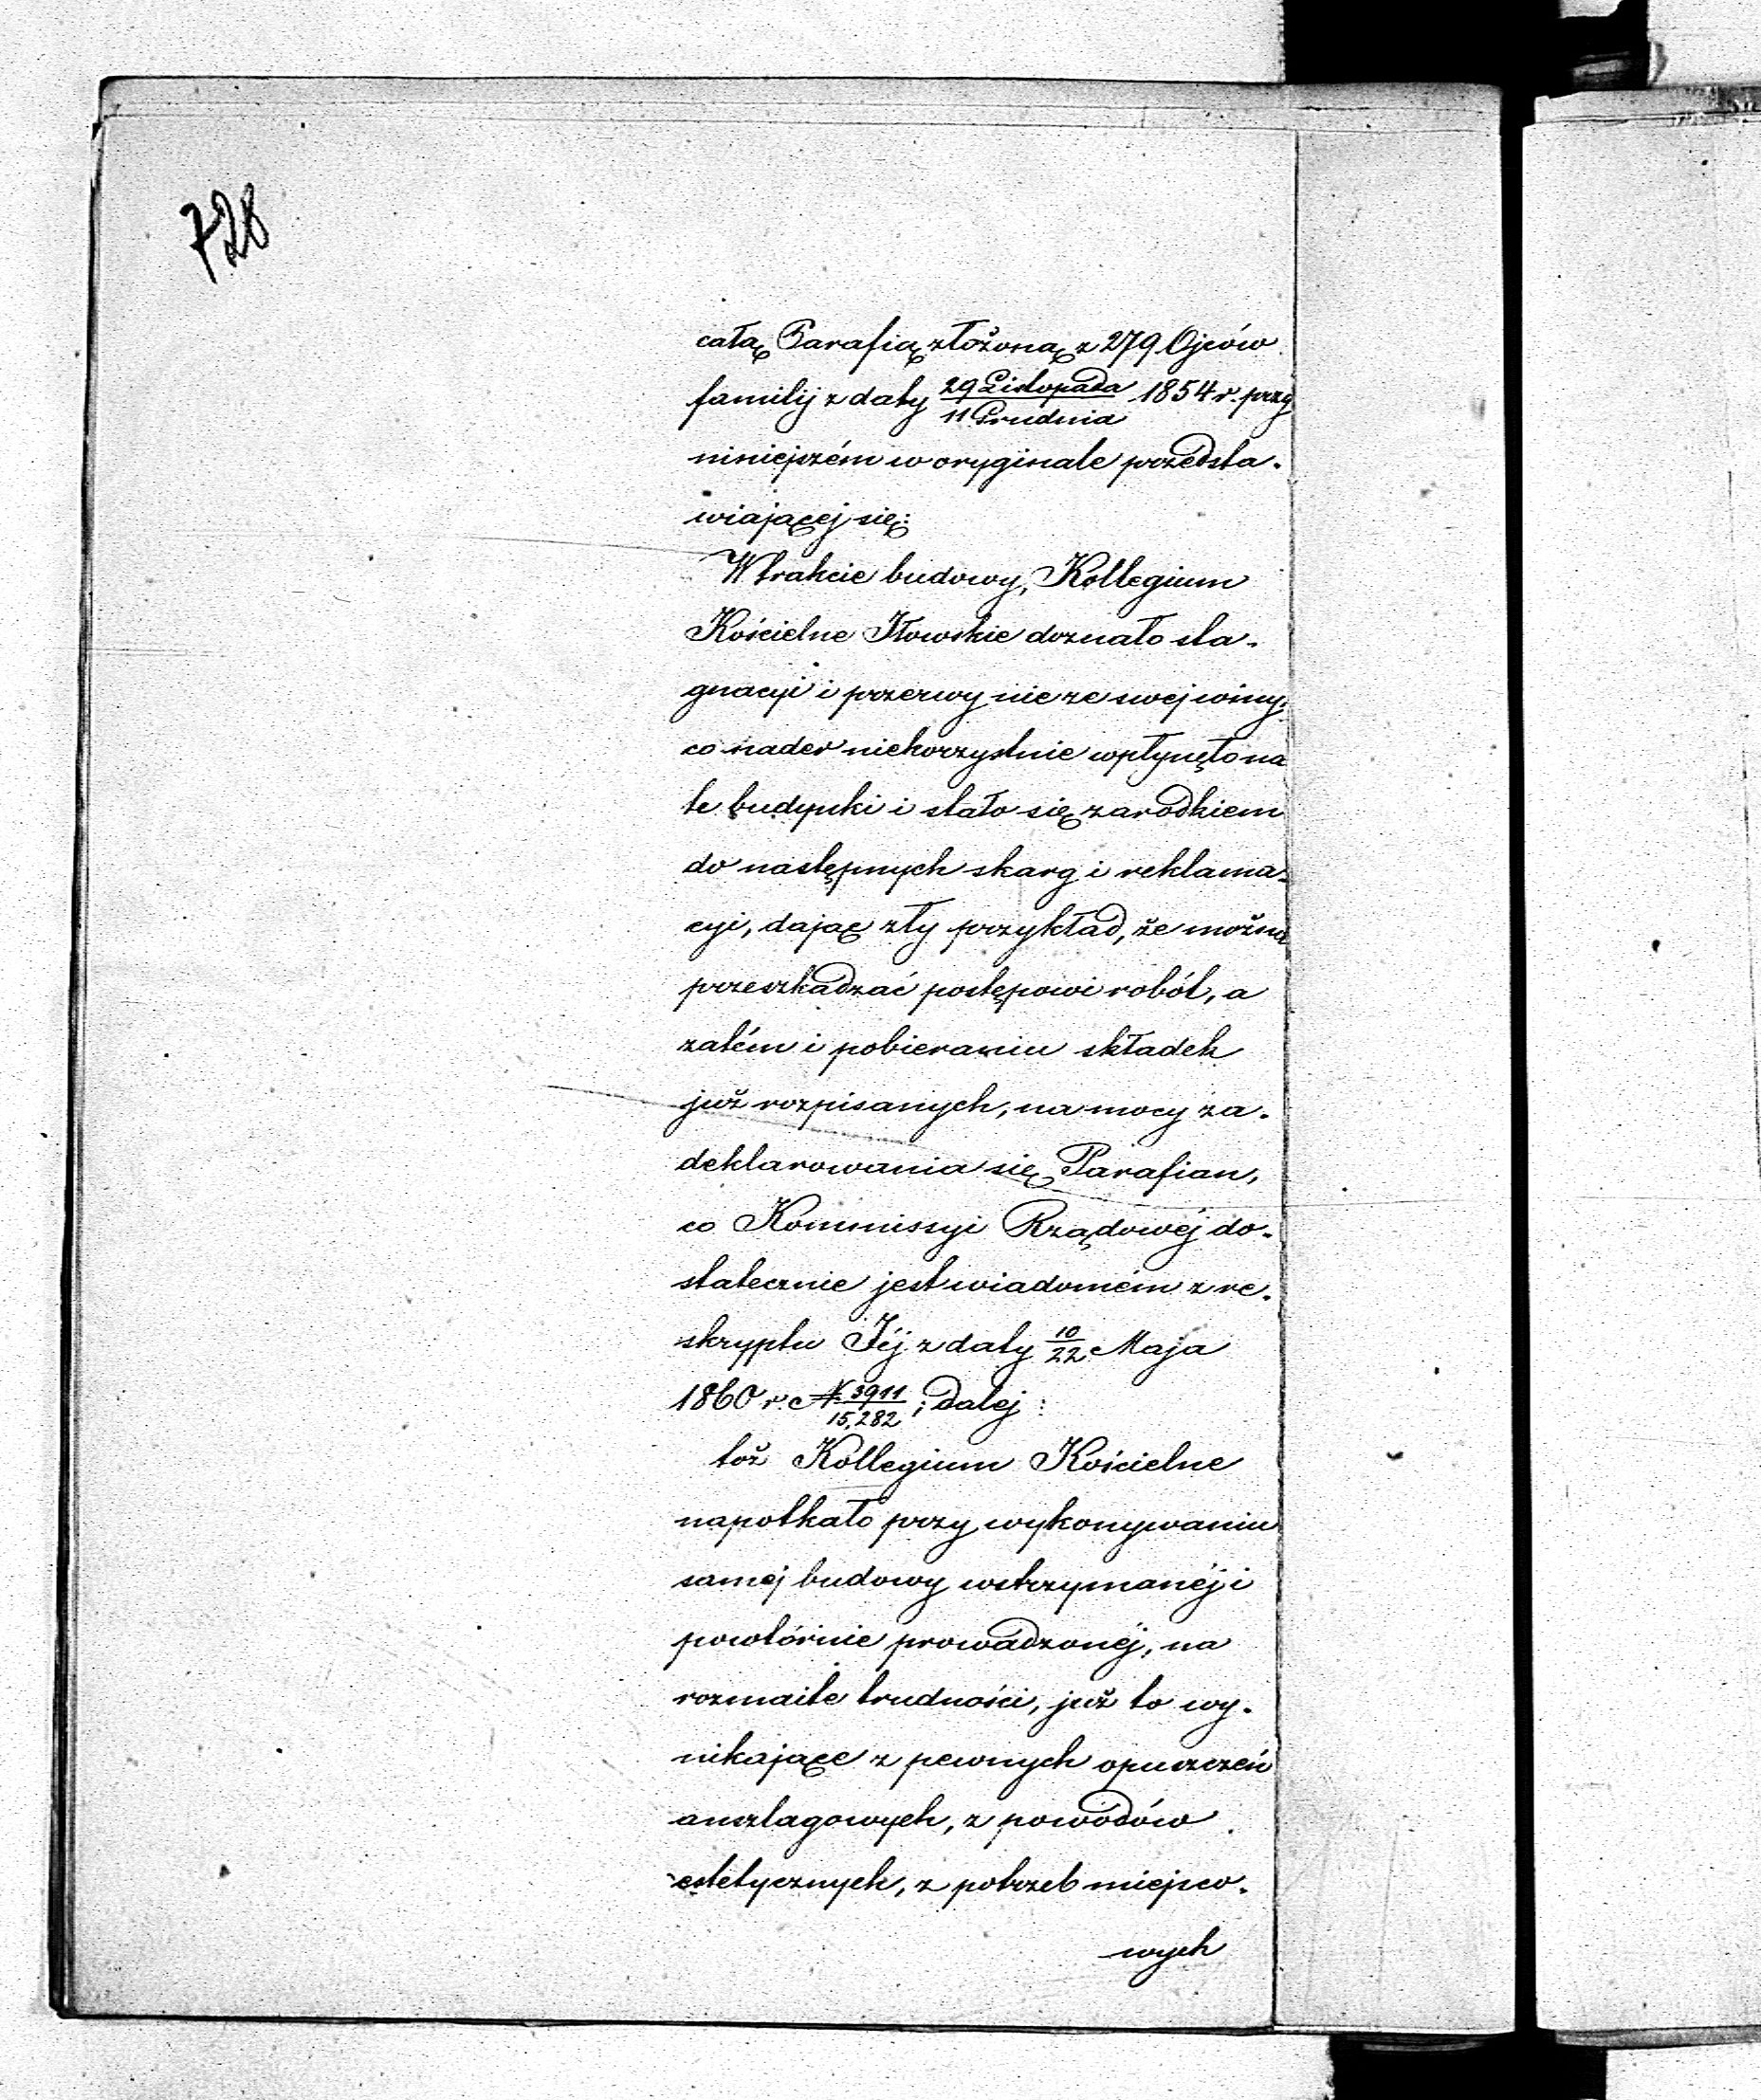 728
całą Parafią złożoną z 279 Ojców
familij z daty 29 Listopada/11 Grudnia 1854 r. przy
niniejszém w oryginale przedsta-
wiającej się:
W trakcie budowy, Kollegium
Kościelne Iłowskie doznało sta-
gnacyi i przerwy nie ze swej winy,
co nader niekorzystnie wpłynęło na
te budynki i stało się zarodkiem
do następnych skarg i reklama-
cyi, dając zły przykład, że można
przeszkadzać postępowi robót, a
zatém i pobieraniu składek
już rozpisanych, na mocy za-
deklarowania się Parafian,
co Kommissyi Rządowéj do-
statecznie jest wiadomém z re-
skryptu Jéj z daty 10/22 Maja
1860 r. N 3911/15,282; dalej:
toż Kollegium Kościelne
napotkało przy wykonywaniu
samej budowy wstrzymanéj i
powtórnie prowadzonéj, na
rozmaite trudności, już to wy-
nikające z pewnych opuszczeń
anszlagowych, z powodów
estetycznych, z potrzeb miejsco-
wych